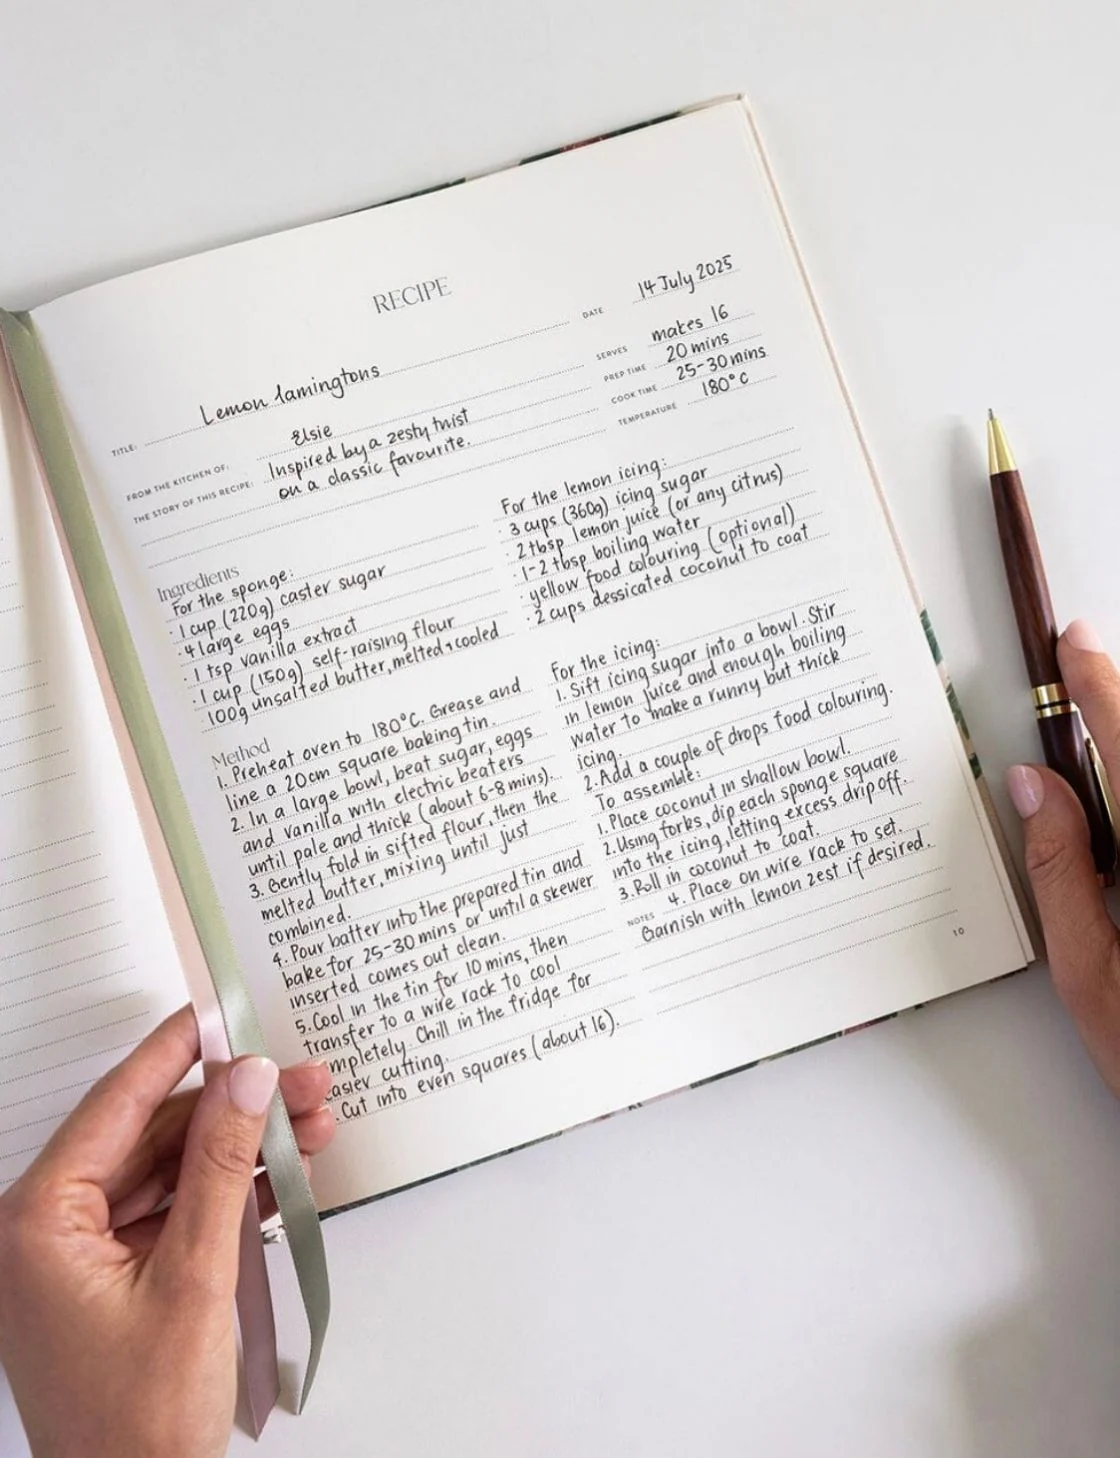 RECIPE
DATE 14 July 2025
TITLE: Lemon lamingtons
SERVES makes 16
PREP TIME 20 mins
COOK TIME 25-30 mins
TEMPERATURE 180°C
FROM THE KITCHEN OF: Elsie
THE STORY OF THIS RECIPE: Inspired by a zesty twist
on a classic favourite.
Ingredients
For the sponge:
· 1 cup (220g) caster sugar
· 4 large eggs
· 1 tsp vanilla extract
· 1 cup (150g) self-raising flour
· 100g unsalted butter, melted & cooled
For the lemon icing:
· 3 cups (360g) icing sugar
· 2 tbsp lemon juice (or any citrus)
· 1-2 tbsp boiling water
· yellow food colouring (optional)
· 2 cups dessicated coconut to coat
Method
1. Preheat oven to 180°C. Grease and
line a 20cm square baking tin.
2. In a large bowl, beat sugar, eggs
and vanilla with electric beaters
until pale and thick (about 6-8 mins).
3. Gently fold in sifted flour, then the
melted butter, mixing until just
combined.
4. Pour batter into the prepared tin and
bake for 25-30 mins or until a skewer
inserted comes out clean.
5. Cool in the tin for 10 mins, then
transfer to a wire rack to cool
mpletely. Chill in the fridge for
easier cutting.
. Cut into even squares (about 16).
For the icing:
1. Sift icing sugar into a bowl. Stir
in lemon juice and enough boiling
water to make a runny but thick
icing.
2. Add a couple of drops food colouring.
To assemble:
1. Place coconut in shallow bowl.
2. Using forks, dip each sponge square
into the icing, letting excess drip off.
3. Roll in coconut to coat.
4. Place on wire rack to set.
NOTES Garnish with lemon zest if desired.
10